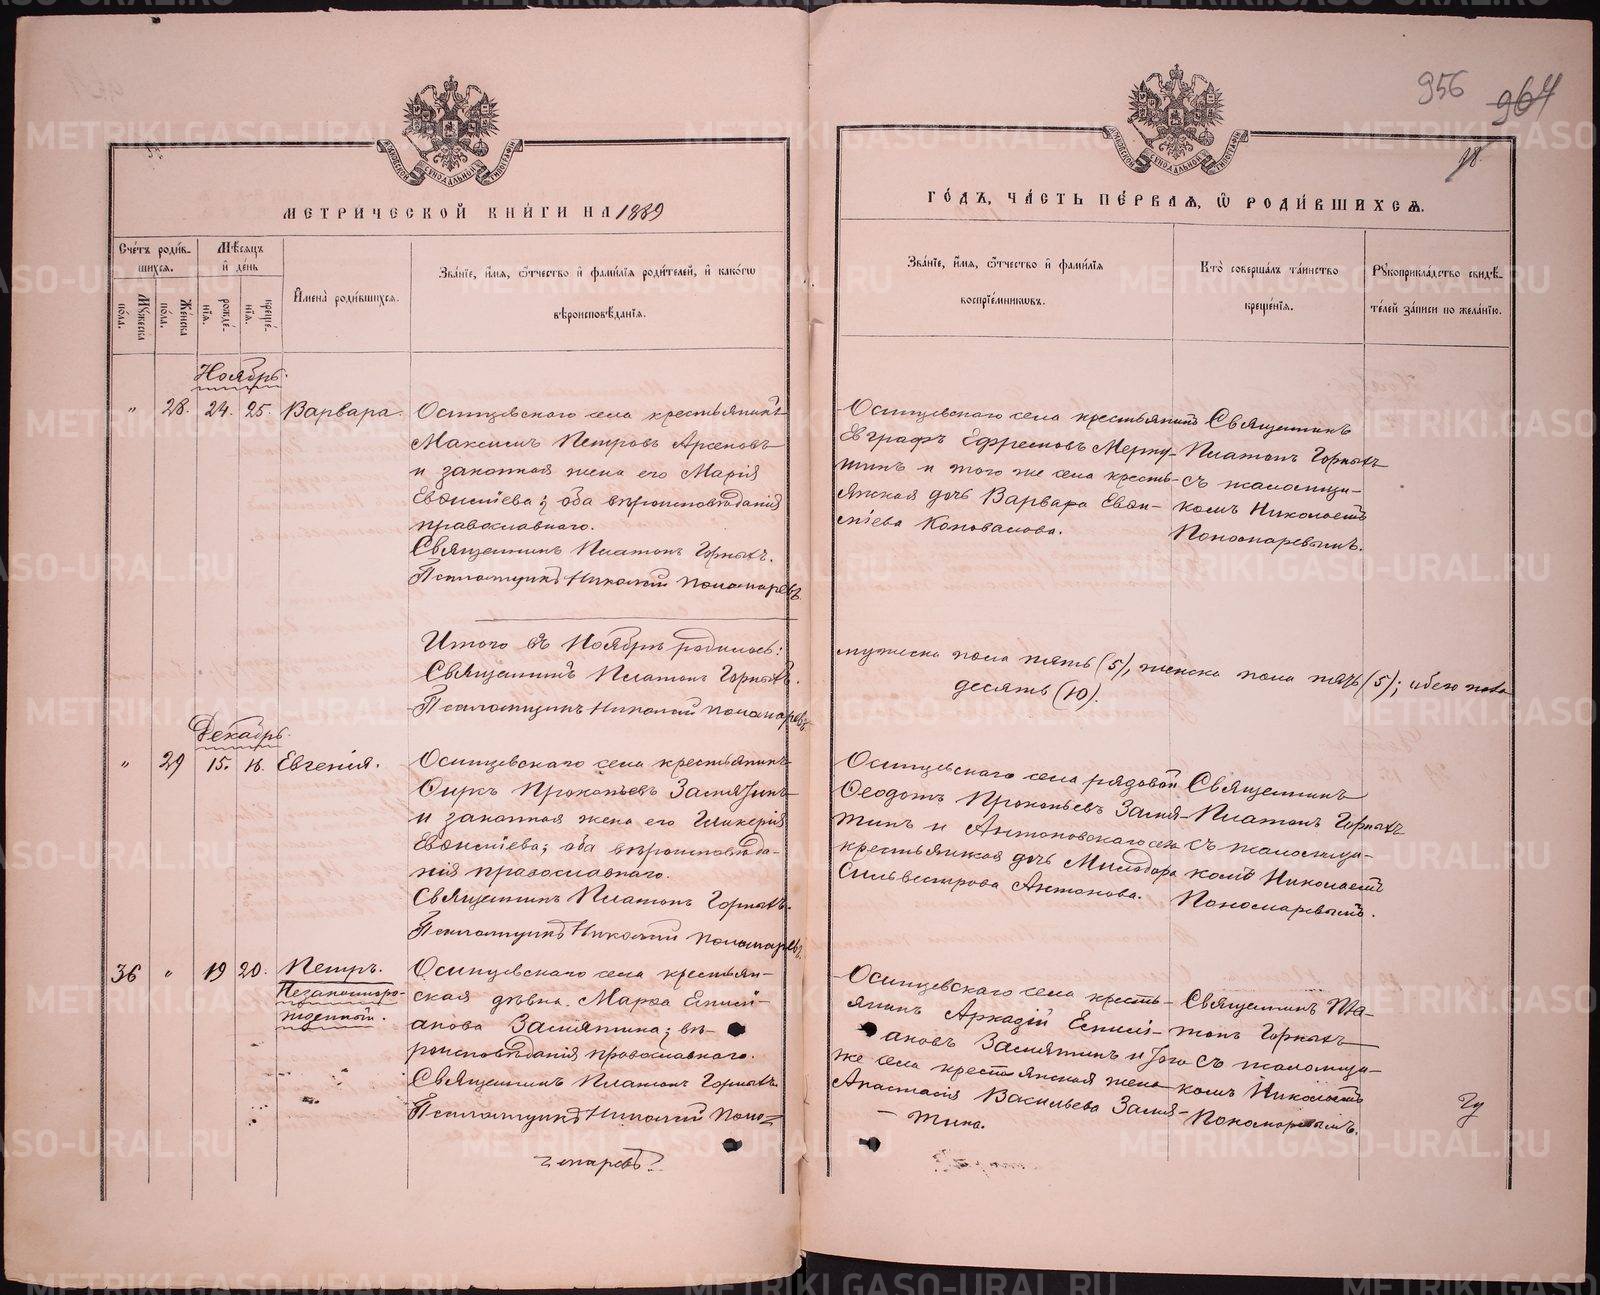 956 964
98.
МЕТРИЧЕСКОЙ КНИГИ НА 1889
ГОДЪ, ЧАСТЬ ПЕРВАЯ, Ѿ РОДИВШИХСЯ.
Счетъ родив-
шихся.
Мужеска пола.
Женска пола.
Мѣсяцъ и день
рожде-
нія.
креще-
нія.
Имена родившихся.
Званіе, имя, отчество и фамилія родителей, и какогѡ
вѣроисповѣданія.
Званіе, имя, отчество и фамилія
воспріемниковъ.
Кто совершалъ таинство
крещенія.
Рукоприкладство свидѣ-
телей записи по желанію.
Ноябрь.
" 28. 24. 25. Варвара.
Осинцевскаго села крестьянинъ
Максимъ Петровъ Арсеновъ
и законная жена его Марія
Евѳиміева; оба вѣроисповѣданія
православнаго.
Священникъ Платонъ Горныхъ.
Псаломщикъ Николай Пономаревъ.
Осинцевскаго села крестьянинъ
Евграфъ Ефремовъ Мерку-
шинъ и того же села кресть-
янская дочь Варвара Евѳи-
міева Коновалова.
Священникъ
Платонъ Горныхъ
съ псаломщи-
комъ Николаемъ
Пономаревымъ.
Итого въ Ноябрѣ родилось:
Священникъ Платонъ Горныхъ.
Псаломщикъ Николай Пономаревъ.
мужеска пола пять (5), женска пола пять (5); обего пола
десять (10).
Декабрь.
" 29 15. 16. Евгенія.
Осинцевскаго села крестьянинъ
Фирсъ Прокопьевъ Замятинъ
и законная жена его Гликерія
Евѳиміева; оба вѣроисповѣда-
нія православнаго.
Священникъ Платонъ Горныхъ.
Псаломщикъ Николай Пономаревъ.
Осинцевскаго села рядовой
Ѳеодотъ Прокопьевъ Замя-
тинъ и Антоновскаго села
крестьянская дочь Милодора
Сильвестрова Антонова.
Священникъ
Платонъ Горныхъ
съ псаломщи-
комъ Николаемъ
Пономаревымъ.
36 " 19 20. Петръ.
Незаконноро-
жденный.
Осинцевскаго села крестьян-
ская дѣвица Марѳа Емели-
анова Замятина; вѣ-
роисповѣданія православнаго.
Священникъ Платонъ Горныхъ.
Псаломщикъ Николай Поно-
маревъ.
Осинцевскаго села кресть-
янинъ Аркадій Емели-
ановъ Замятинъ и того
же села крестьянская жена
Анастасія Васильева Замя-
тина.
Священникъ Пла-
тонъ Горныхъ
съ псаломщи-
комъ Николаемъ
Пономаревымъ.